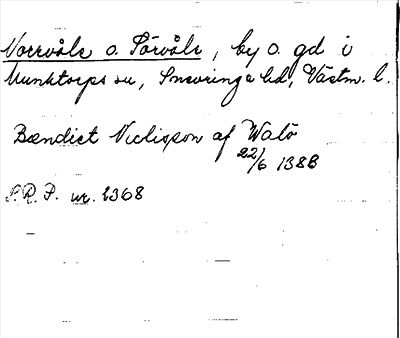 Norrvåla o. Sörvåla, by o. gd i
Munktorps sn, Snevringe hd, Västm. l.
Bændict Niclisson af Walö
22/6 1388
S.R.P. nr. 2368